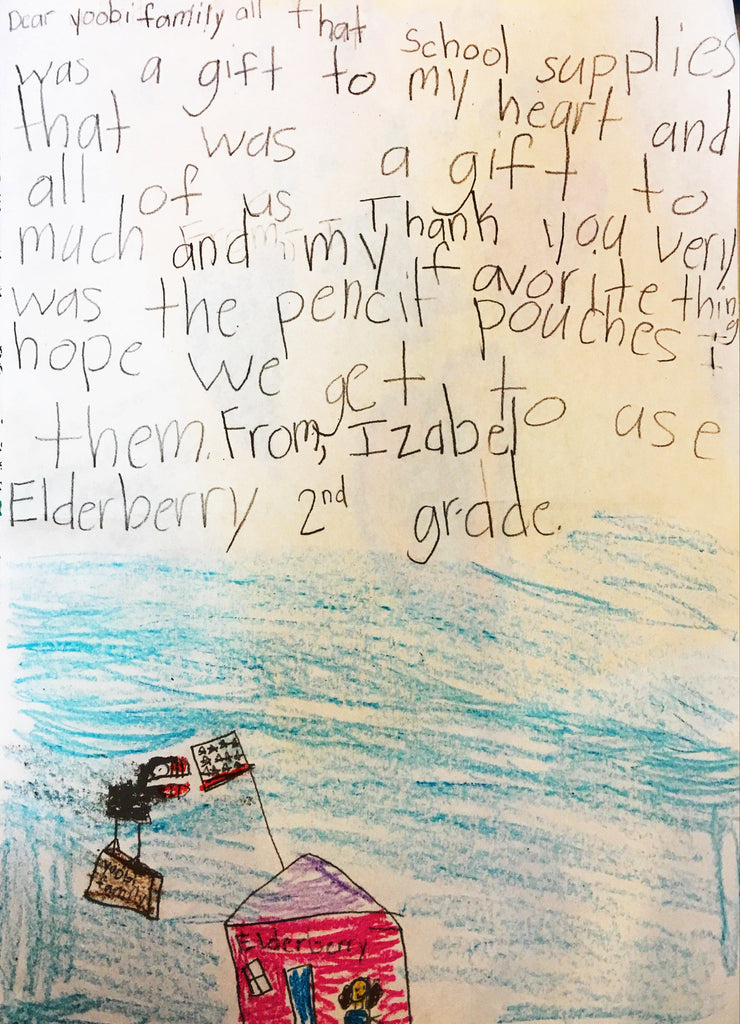 Dear yoobi family all that school supplies
was a gift to my heart and
that was a gift to
all of us Thank you very
much and my favorite thing
was the pencil pouches I
hope we get to use
them. From, Izabel
Elderberry 2nd grade.
yoobi
family
Elderberry